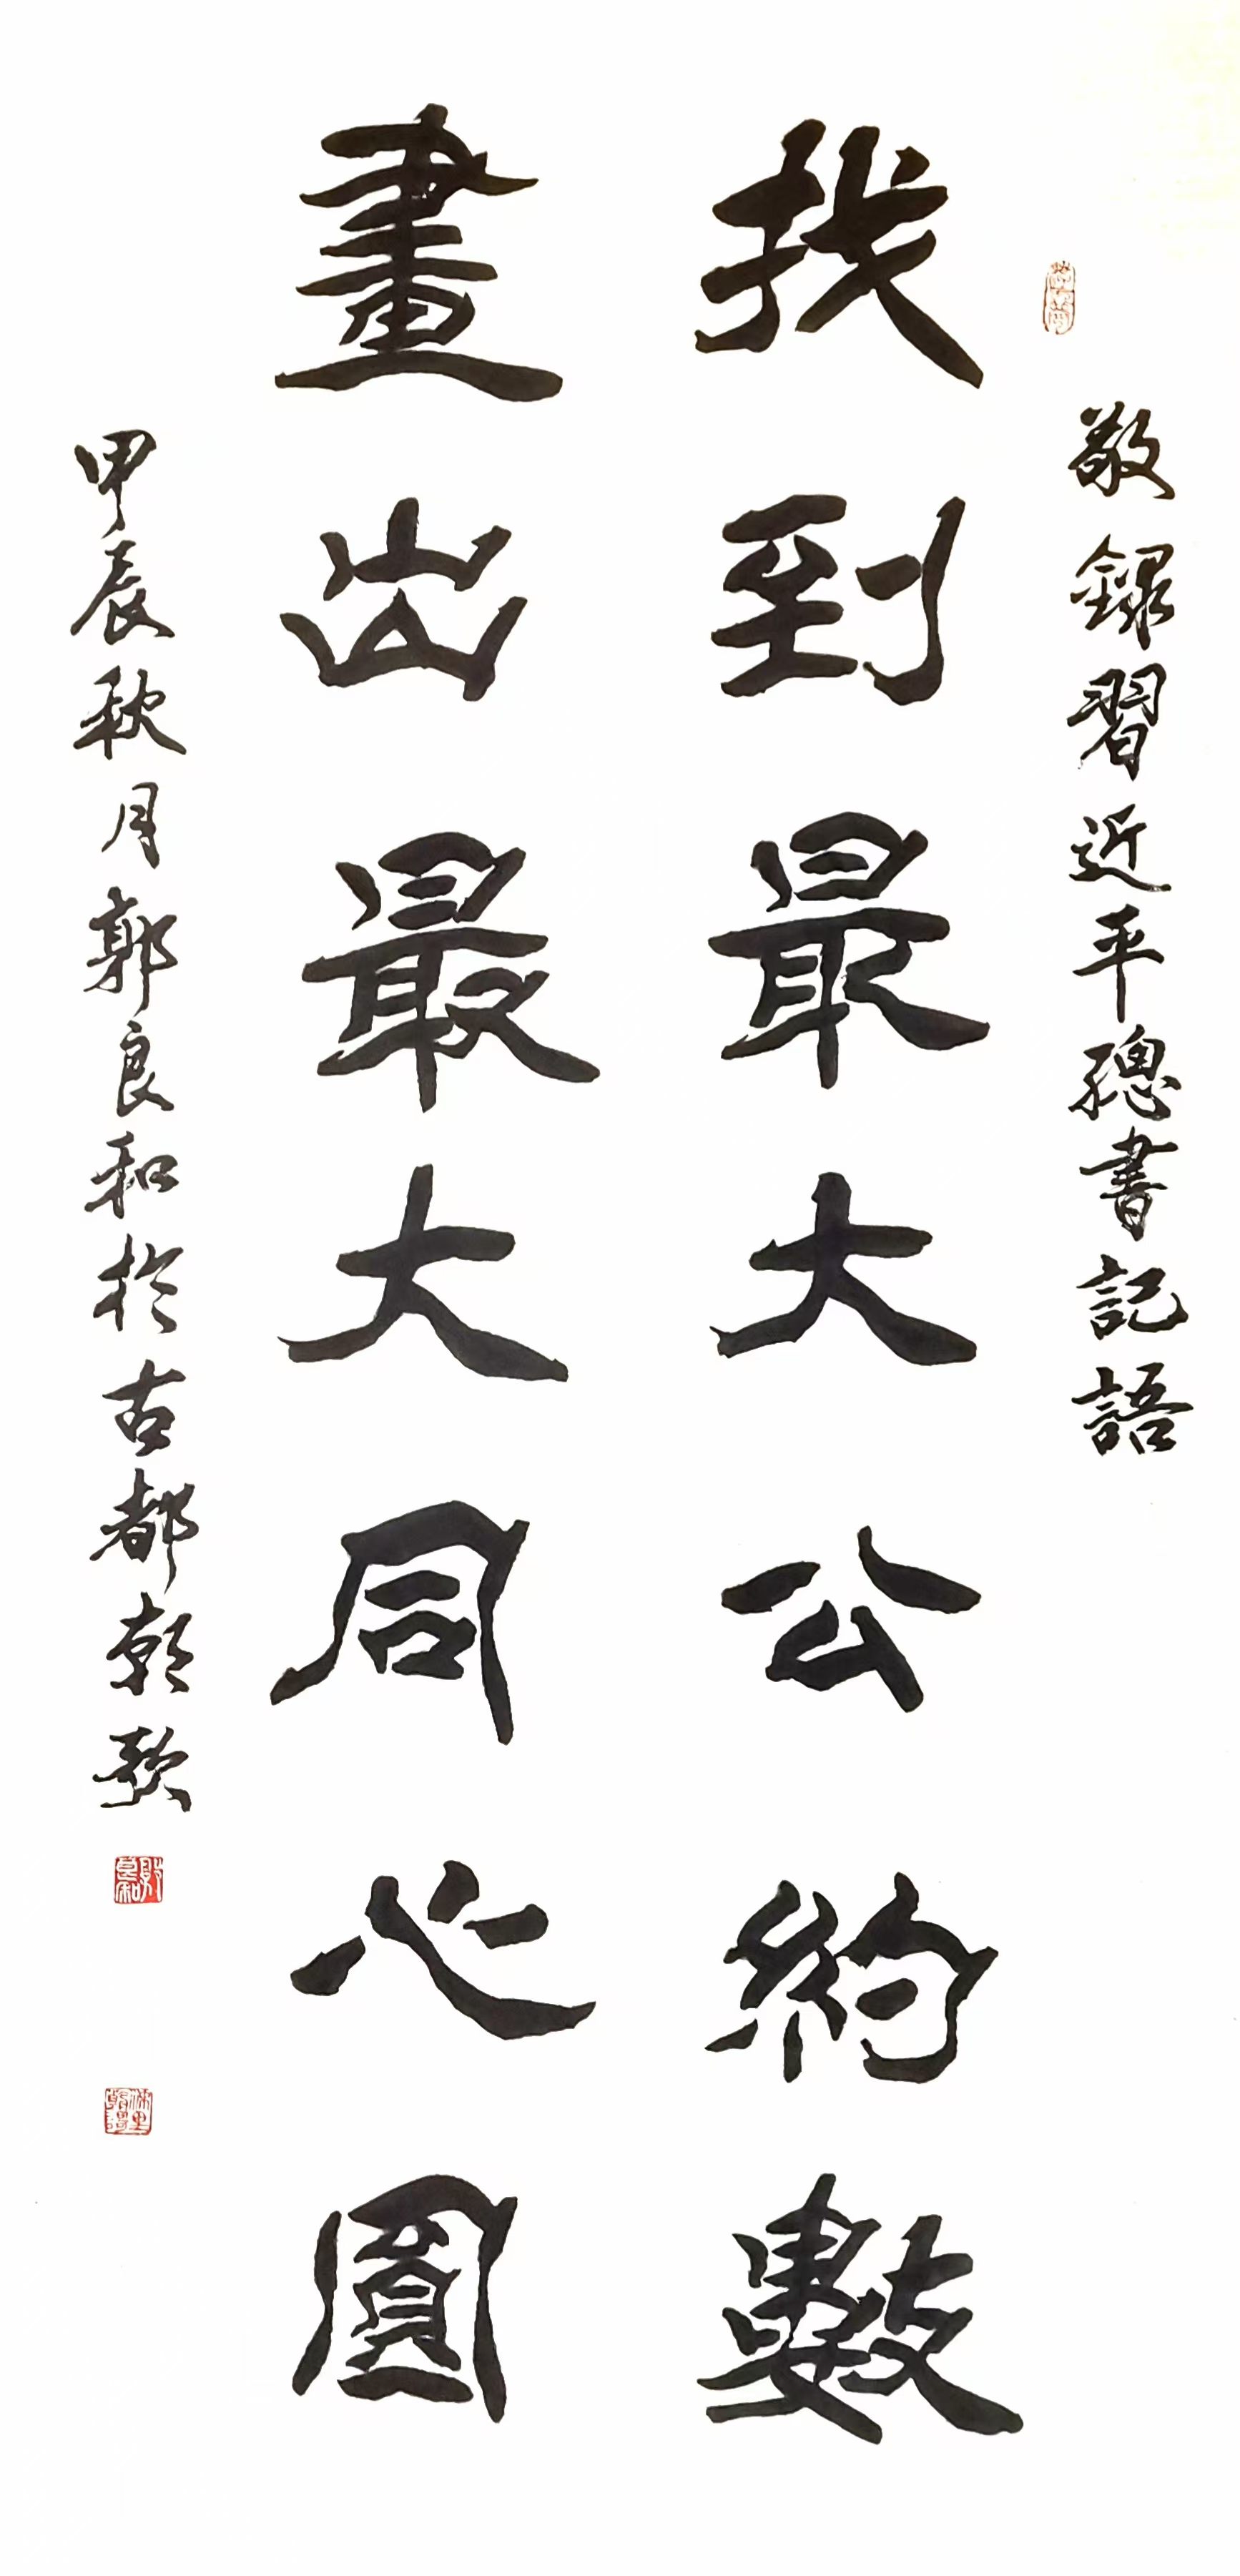 敬録習近平總書記語
找到最大公約數
畫出最大同心圓
甲辰秋月郭良和於古都朝歌
郭良和